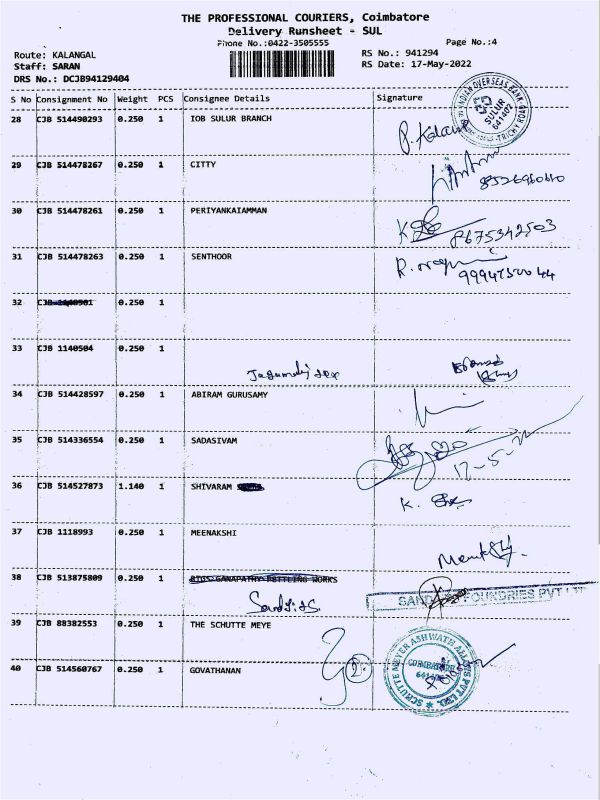 THE PROFESSIONAL COURIERS, Coimbatore
Delivery Runsheet - SUL
Phone No.:0422-3505555 Page No.:4
Route: KALANGAL RS No.: 941294
Staff: SARAN RS Date: 17-May-2022
DRS No.: DCJB94129404
S No Consignment No Weight PCS Consignee Details Signature
28 CJB 514490293 0.250 1 IOB SULUR BRANCH
INDIAN OVERSEAS BANK
SULUR
641402
TRICHY ROAD
29 CJB 514478267 0.250 1 CITTY
30 CJB 514478261 0.250 1 PERIYANKAIAMMAN
8675342503
31 CJB 514478263 0.250 1 SENTHOOR
32 0.250 1
33 CJB 1140504 0.250 1
34 CJB 514428597 0.250 1 ABIRAM GURUSAMY
35 CJB 514336554 0.250 1 SADASIVAM
17-5-22
36 CJB 514527873 1.140 1 SHIVARAM
37 CJB 1118993 0.250 1 MEENAKSHI
38 CJB 513875809 0.250 1 GANAPATHY BOTTLING WORKS
FOUNDRIES PVT LTD
39 CJB 88382553 0.250 1 THE SCHUTTE MEYE
SCHUTTE MEYER ASHWATH ALLOYS PVT LTD.
COIMBATORE
40 CJB 514560767 0.250 1 GOVATHANAN
2